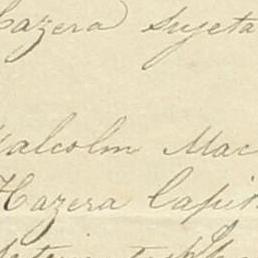 Cazera Sujeta
Malcolm Mac
Hazera Capin